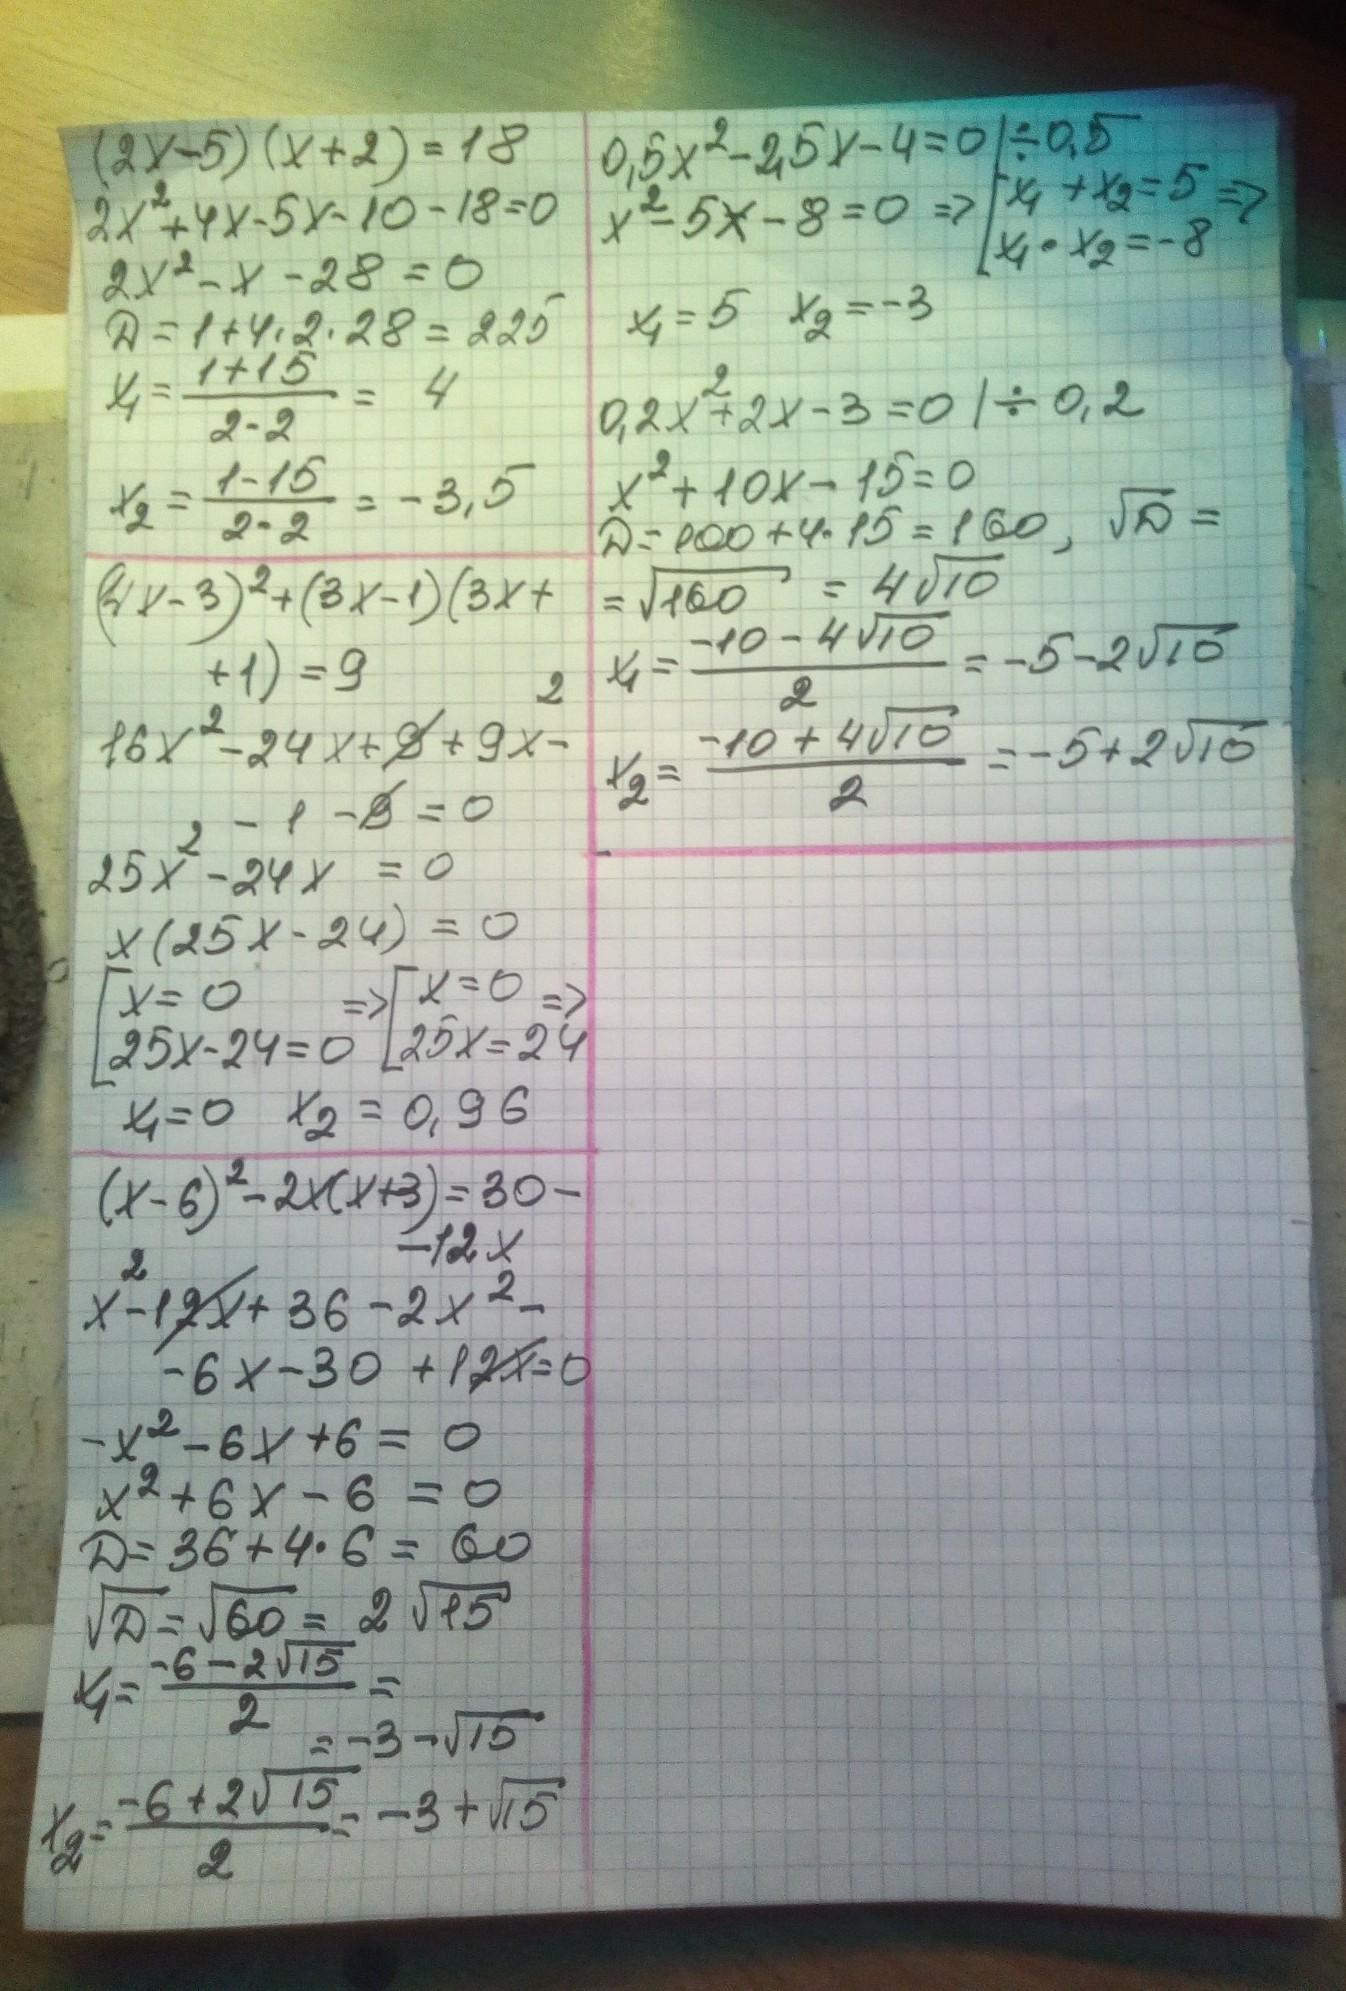 (2x-5)(x+2)=18
2x²+4x-5x-10-18=0
2x²-x-28=0
D=1+4·2·28=225
x₁=(1+15)/(2·2)=4
x₂=(1-15)/(2·2)=-3,5
(4x-3)²+(3x-1)(3x+
+1)=9
16x²-24x+9+9x²-
-1-9=0
25x²-24x=0
x(25x-24)=0
[x=0 => [x=0 =>
[25x-24=0 [25x=24
x₁=0 x₂=0,96
(x-6)²-2x(x+3)=30-
-12x
x²-12x+36-2x²-
-6x-30+12x=0
-x²-6x+6=0
x²+6x-6=0
D=36+4·6=60
√D=√60=2√15
x₁=(-6-2√15)/2=
=-3-√15
x₂=(-6+2√15)/2=-3+√15
0,5x²-2,5x-4=0|÷0,5
x²-5x-8=0 => [x₁+x₂=5 =>
[x₁·x₂=-8
x₁=5 x₂=-3
0,2x²+2x-3=0|÷0,2
x²+10x-15=0
D=100+4·15=160, √D=
=√160=4√10
x₁=(-10-4√10)/2=-5-2√10
x₂=(-10+4√10)/2=-5+2√10